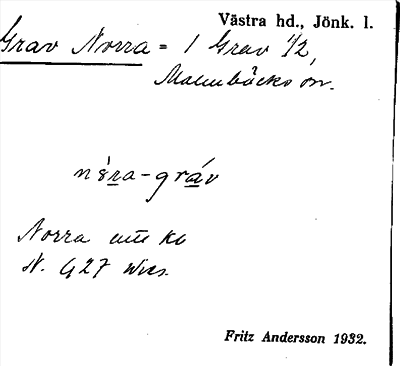 Västra hd., Jönk. l.
Grav Norra = 1 Grav 1/2,
Malmbäcks sn.
nòra-gráv
Norra
N. G 27
Fritz Andersson 1932.